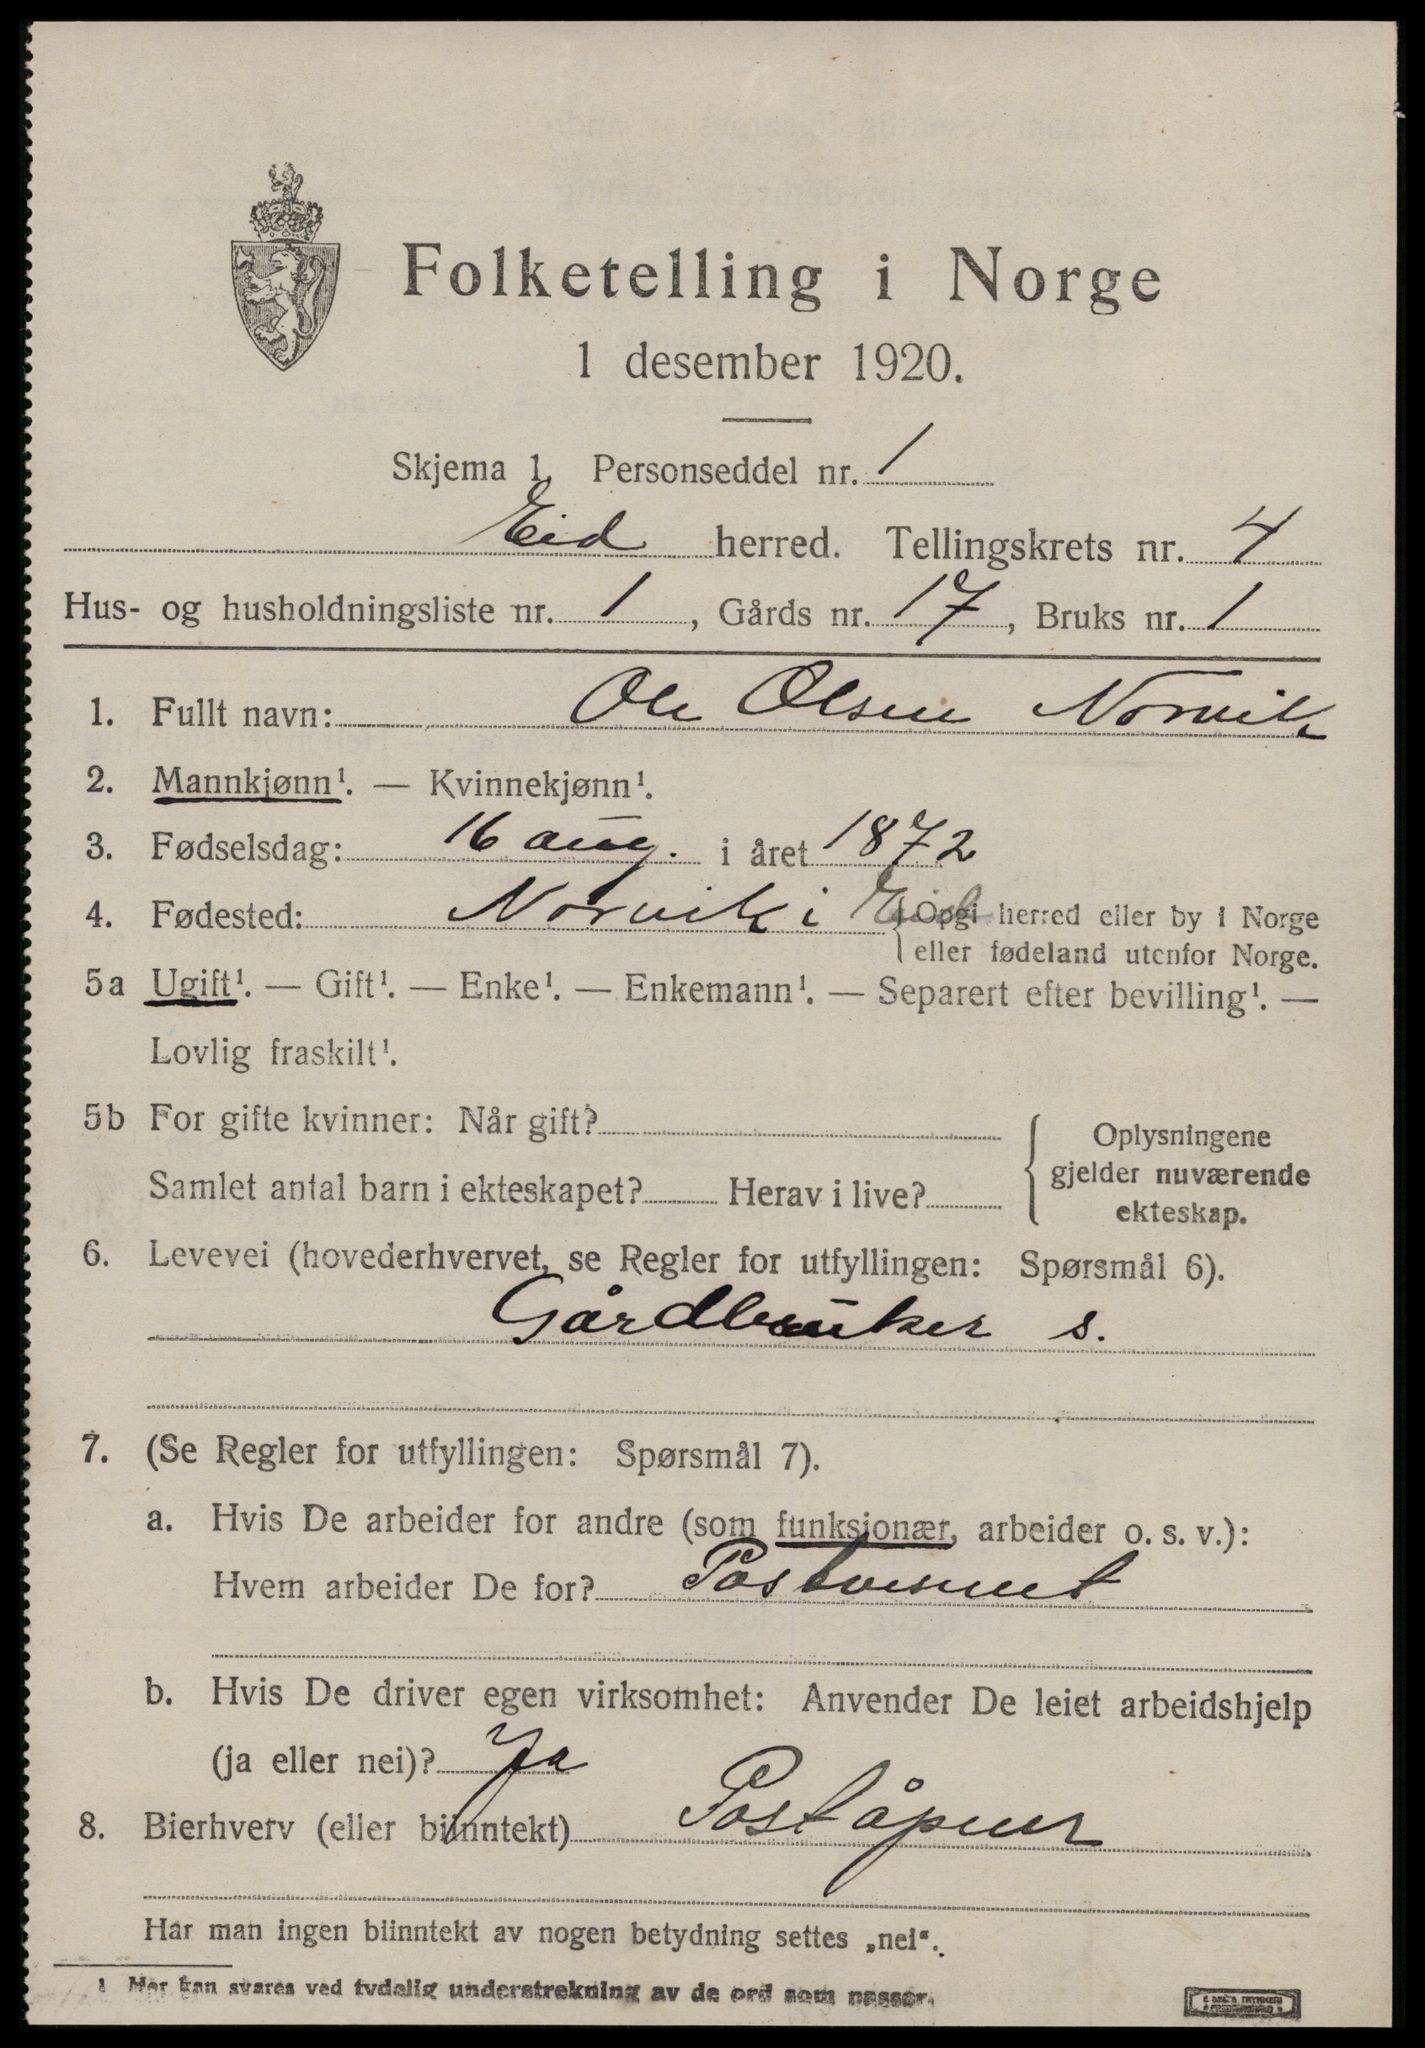 Folketelling i Norge
1 desember 1920.
Skjema 1. Personseddel nr. 1
Eid herred. Tellingskrets nr. 4
Hus- og husholdningsliste nr. 1, Gårds nr. 17, Bruks nr. 1
1. Fullt navn: Ole Olsen Norvik
2. Mannkjønn¹. — Kvinnekjønn¹.
3. Fødselsdag: 16 aug. i året 1872
4. Fødested: Norvik i Eid {Opgi herred eller by i Norge
eller fødeland utenfor Norge.
5a Ugift¹. — Gift¹. — Enke¹. — Enkemann¹. — Separert efter bevilling¹. —
Lovlig fraskilt¹.
5b For gifte kvinner: Når gift?
Samlet antal barn i ekteskapet? Herav i live?
Oplysningene
gjelder nuværende
ekteskap.
6. Levevei (hovederhvervet, se Regler for utfyllingen: Spørsmål 6).
Gårdbruker s.
7. (Se Regler for utfyllingen: Spørsmål 7).
a. Hvis De arbeider for andre (som funksjonær, arbeider o. s. v.):
Hvem arbeider De for? Postvesenet
b. Hvis De driver egen virksomhet: Anvender De leiet arbeidshjelp
(ja eller nei)? Ja
8. Bierhverv (eller biinntekt) Poståpner
Har man ingen biinntekt av nogen betydning settes „nei“.
1 Her kan svares ved tydelig understrekning av de ord som passer.